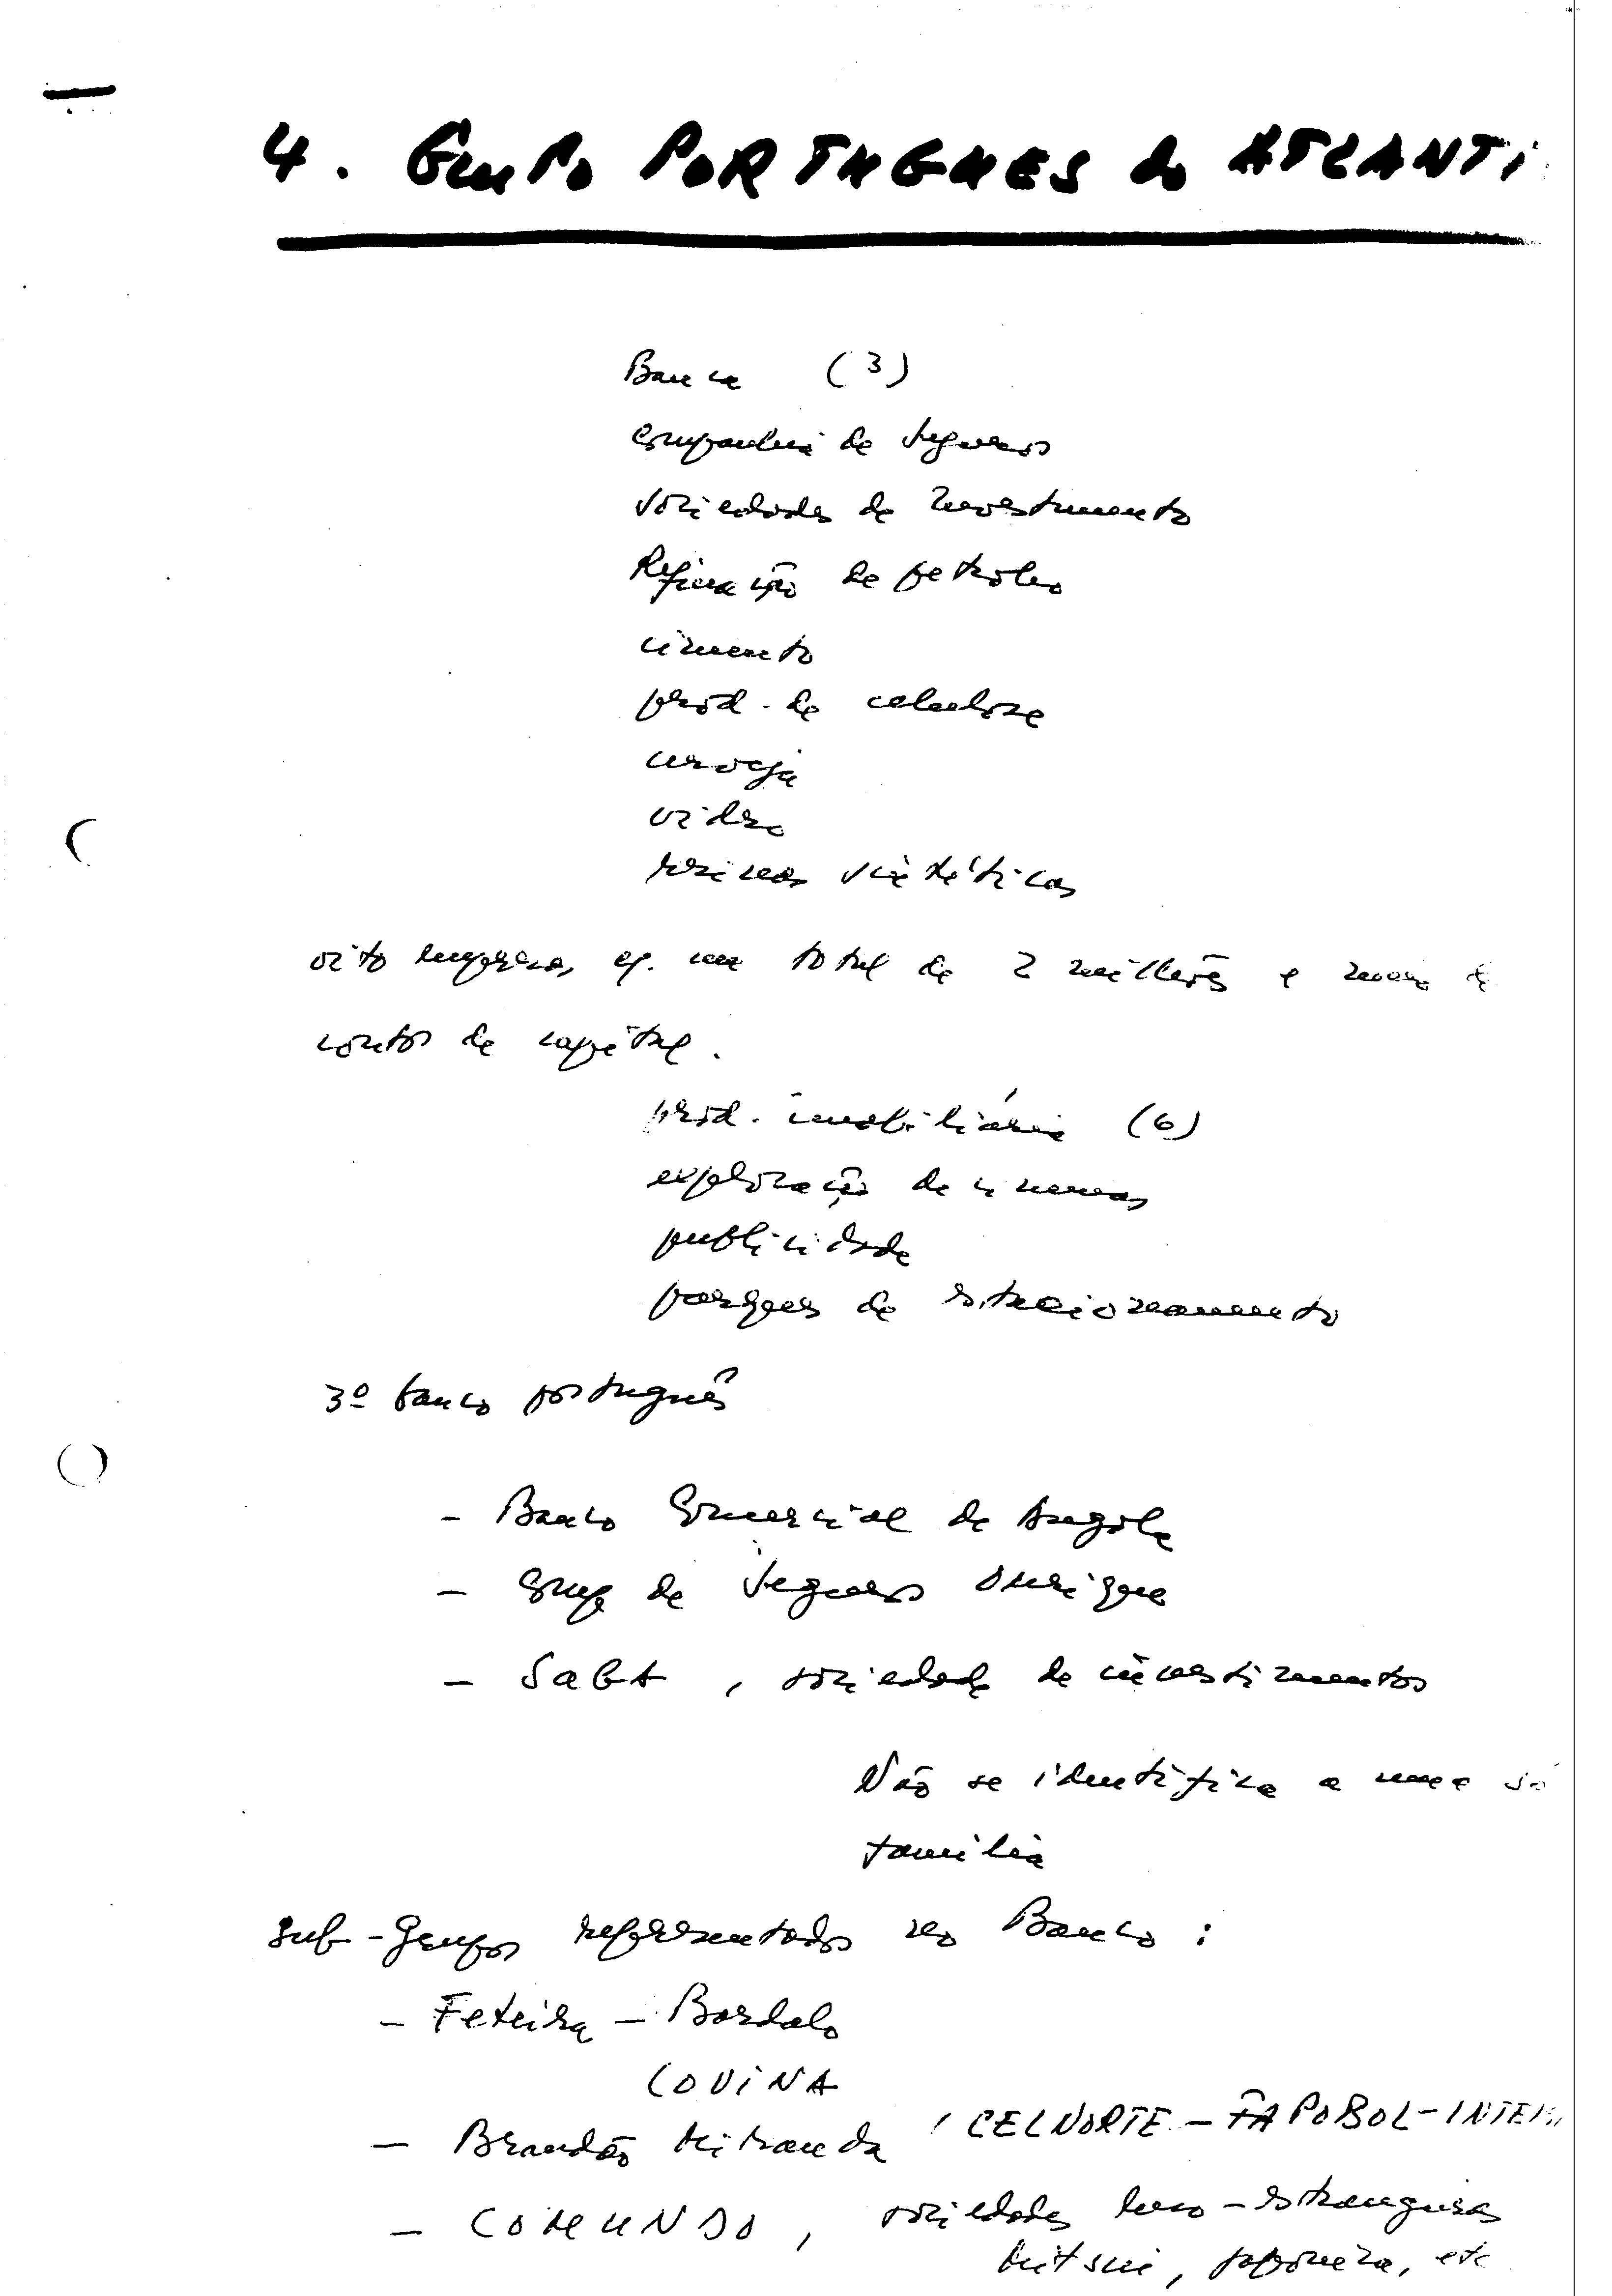 4. GRUPO PORTUGUES do ATLANTI
Banca (3)
companhia de seguros
sociedades de investimento
Refinação de petróleo
cimento
prod. de celulose
cerveja
vidro
resinas sintéticas
oito empresas, c/ um total de 2 milhões e
contos de capital.
prod. imobiliária (6)
exploração de cinemas
publicidade
parques de estacionamento
3º banco português
- Banco Comercial de Angola
- Grupo de Seguros Ourique
- , sociedade de investimentos
Não se identifica a uma só
família
Sub-Grupos representados no Banco :
- Feteira - Bordalo
COVINA
- Brandão Miranda , CELNORTE - FAPOBOL - INTER
- COMUNDO , sociedades luso-estrangeiras
Mitsui, japoneza, etc